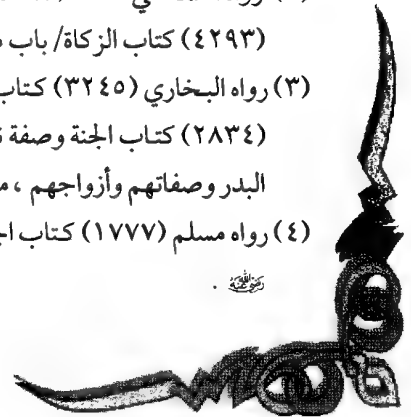 (٤٢٩٣) كتاب الزكاة/ باب
(٣) رواه البخاري (٣٢٤٥) كتاب
(٢٨٣٤) كتاب الجنة وصفة
البدر وصفاتهم وأزواجهم ،
(٤) رواه مسلم (١٧٧٧) كتاب
رضي الله عنه .